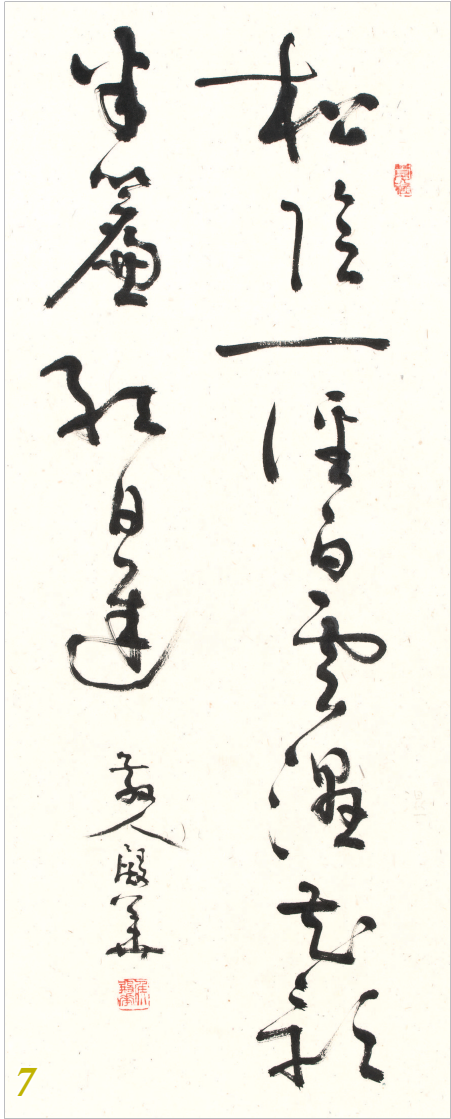 松陰一徑白雲濕花影
半簾紅日遲
7